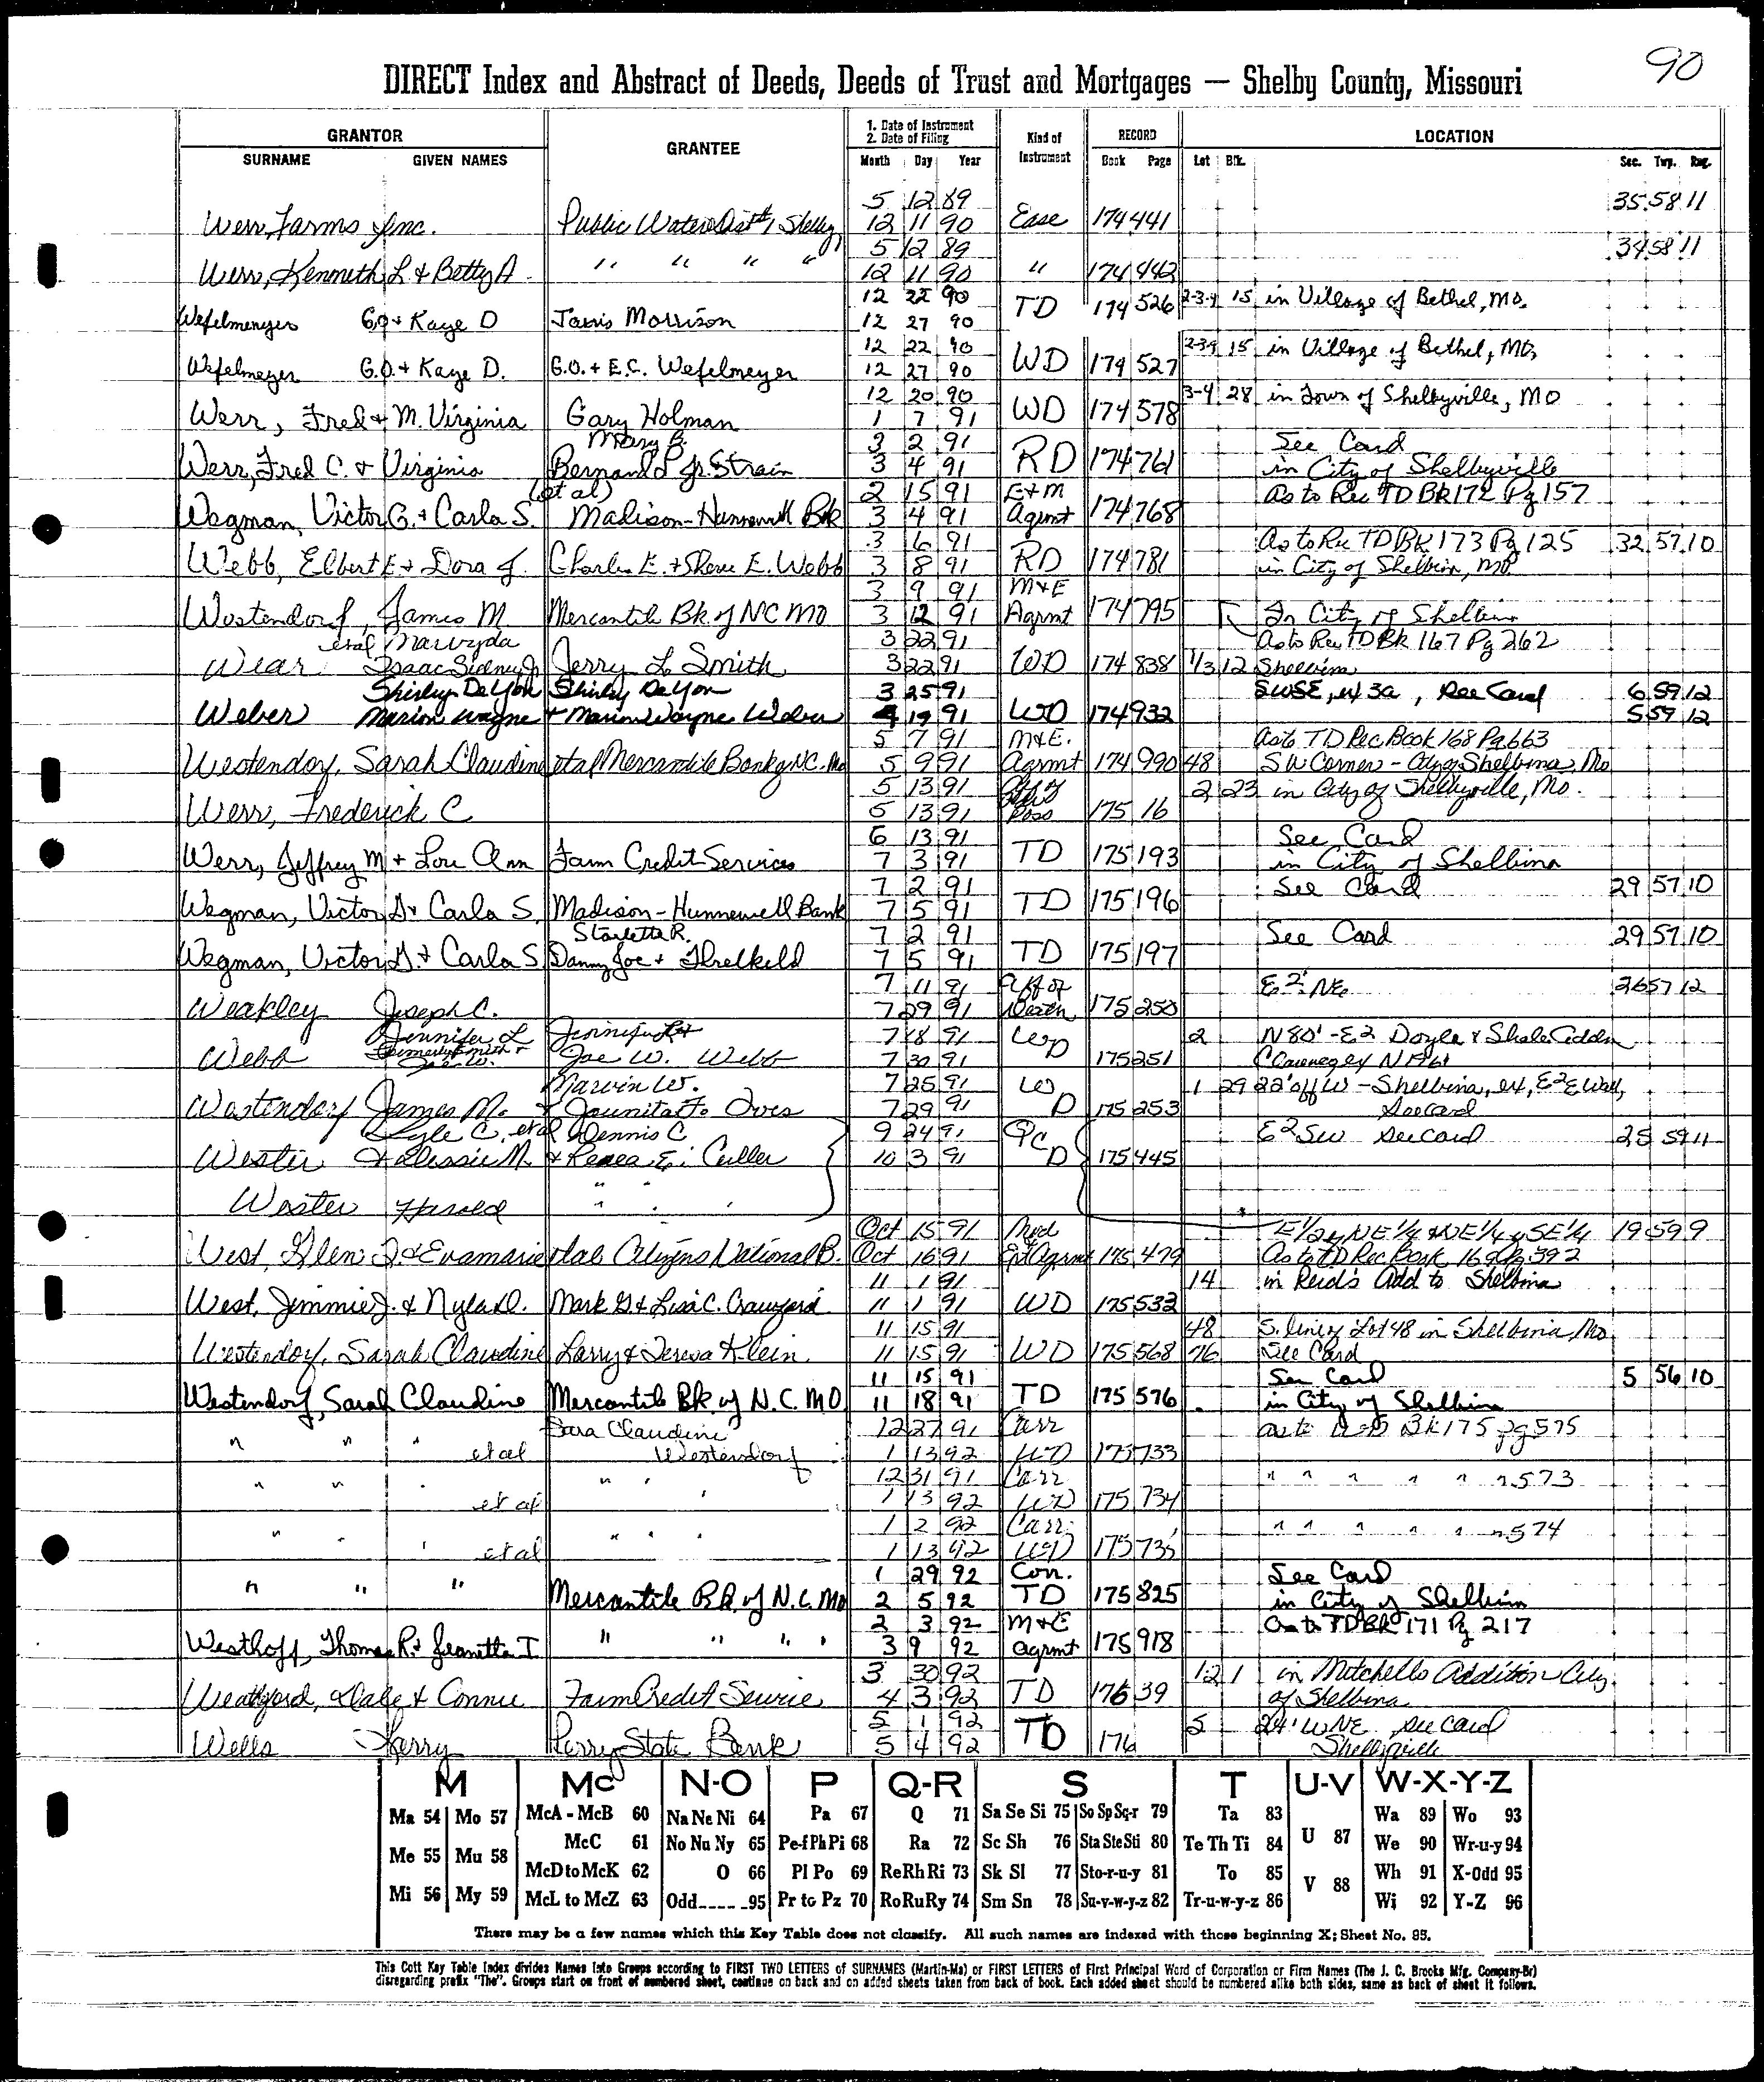 90
DIRECT Index and Abstract of Deeds, Deeds of Trust and Mortgages — Shelby County, Missouri
GRANTOR GRANTEE 1. Date of Instrument 2. Date of Filing Kind of Instrument RECORD LOCATION
SURNAME GIVEN NAMES Month Day Year Book Page Lot Blk. Sec. Twp. Rng.
5 12 89 35 58 11
Werr Farms Inc. Public Water Dist #1 Shelby 12 11 90 Ease 174 441
5 12 89 34 58 11
Werr, Kenneth L. & Betty A. " " " " 12 11 90 " 174 442
12 22 90 TD 174 526 2-3-4 15 in Village of Bethel, Mo.
Wefelmenyer G.O + Kaye D Janis Morrison 12 27 90
12 22 90 2-3-4 15 in Village of Bethel, Mo,
Wefelmeyer G.O. + Kaye D. G.O. + E.C. Wefelmeyer 12 27 90 WD 174 527
12 20 90 3-4 28 in Town of Shelbyville, MO
Werr, Fred & M. Virginia Gary Holman 1 7 91 WD 174 578
Mary B. 3 2 91 See Card
Werr, Fred C. & Virginia Bernard L Jr. Strain 3 4 91 RD 174 761 in City of Shelbyville
(et al) 2 15 91 E+M As to Rec TD BK 172 Pg 157
Wegman, Victor G. + Carla S. Madison-Hunnewell Bk 3 4 91 Agrmt 174 768
3 6 91 As to Rec TD BK 173 Pg 125 32 57 10
Webb, Elbert E + Dora J. Charles E. + Sherre E. Webb 3 8 91 RD 174 781 in City of Shelbina, MO
3 9 91 M+E
Westendorf, James M. Mercantile Bk of NC MO 3 12 91 Agrmt 174 795 In City of Shelbina
etal 3 22 91 As to Rec TD Bk 167 Pg 262
Wear Isaac Sidney Jr Jerry L. Smith 3 22 91 WD 174 838 1/3 12 Shelbina
Shirley DeYon Shirley DeYon 3 25 91 SWSE, ex 3a, See Card 6 59 12
Weber Marion Wayne + Marion Wayne Weber 4 19 91 WD 174 932 5 59 12
5 7 91 M+E. As to TD Rec Book 168 Pg 663
Westendorf, Sarah Claudine etal Mercantile Bank of N.C. Mo 5 9 91 Agrmt 174 990 48 SW Corner - City of Shelbina, Mo
5 13 91 2 23 in City of Shelbyville, Mo.
Werr, Frederick C 5 13 91 175 16
6 13 91 See Card
Werr, Jeffrey M + Lori Ann Farm Credit Services 7 3 91 TD 175 193 in City of Shelbina
7 2 91 See Card 29 57 10
Wegman, Victor G + Carla S. Madison-Hunnewell Bank 7 5 91 TD 175 196
Starletta R. 7 2 91 See Card 29 57 10
Wegman, Victor G. + Carla S Danny Joe + Threlkeld 7 5 91 TD 175 197
7 11 91 Aff of E2 NE 26 57 12
Weakley Joseph C. 7 29 91 Death 175 250
Jennifer L Jennifer L + 7 18 91 WD 2 N 80' - E2 Doyle & Shale Addn
Webb formerly Smith + Joe W. Joe W. Webb 7 30 91 175 251
Marvin W. 7 25 91 W 1 29 22' off W - Shelbina, ex, E2 E Wall,
Westendorf James M. + Jaunita Fo. 7 29 91 D 175 253 See card
Lyle C, et al Dennis C 9 24 91 QC E2 SW See card 25 59 11
Wester & Blessie M. + Renea E. Culler 10 3 91 D 175 445
Wester Harold " " "
Oct 15 91 Mod E 1/2 of NE 1/4 & NE 1/4 of SE 1/4 19 59 9
West, Glen D. & Evamarie etal Citizens National B. Oct 16 91 Ext Agrmt 175 479 As to TD Rec Book 169 Pg 392
11 1 91 14 in Reid's Add to Shelbina
West, Jimmie J. & Nyla D. Mark G. & Lisa C. Crawford 11 1 91 WD 175 533
11 15 91 48 S. line of Lot 48 in Shelbina Mo
Westendorf, Sarah Claudine Larry & Teresa Klein 11 15 91 WD 175 568 76 See Card
11 15 91 See Card 5 56 10
Westendorf, Sarah Claudine Mercantile Bk of N.C. MO 11 18 91 TD 175 576 in City of Shelbina
Sara Claudine 12 27 91 Corr as to WD Bk 175 pg 575
" " " et al Westendorf 1 13 92 WD 175 733
" " " " " 12 31 91 Corr " " " " " " 573
et al 1 13 92 WD 175 734
" " " " " " 1 2 92 Corr. " " " " " " 574
et al 1 13 92 WD 175 735
1 29 92 Corr. See Card
" " " Mercantile Bk of N.C. Mo 2 5 92 TD 175 825 in City of Shelbina
2 3 92 M+E As to TD BK 171 Pg 217
Westhoff, Thomas R. + Jeanetta I " " " " 3 9 92 agrmt 175 918
3 30 92 1 2 1 in Mitchells Addition City
Weatherford, Dale & Connie Farm Credit Service 4 3 92 TD 176 39 of Shelbina
5 1 92 5 24' W NE See card
Wells Kerry Perry State Bank 5 4 92 TD 176 Shelbyville
M Mc N-O P Q-R S T U-V W-X-Y-Z
Ma 54 Mo 57 McA - McB 60 Na Ne Ni 64 Pa 67 Q 71 Sa Se Si 75 So Sp Sq-r 79 Ta 83 U 87 Wa 89 Wo 93
Me 55 Mu 58 McC 61 No Nu Ny 65 Pe-f Ph Pi 68 Ra 72 Sc Sh 76 Sta Ste Sti 80 Te Th Ti 84 We 90 Wr-u-y 94
McD to McK 62 O 66 Pl Po 69 Re Rh Ri 73 Sk Sl 77 Sto-r-u-y 81 To 85 V 88 Wh 91 X-Odd 95
Mi 56 My 59 McL to McZ 63 Odd_____95 Pr to Pz 70 Ro Ru Ry 74 Sm Sn 78 Su-v-w-y-z 82 Tr-u-w-y-z 86 Wi 92 Y-Z 96
There may be a few names which this Key Table does not classify. All such names are indexed with those beginning X; Sheet No. 95.
This Cott Key Table Index divides Names Into Groups according to FIRST TWO LETTERS of SURNAMES (Martin-Ma) or FIRST LETTERS of First Principal Word of Corporation or Firm Names (The J. C. Brooks Mfg. Company-Br)
disregarding prefix "The". Groups start on front of numbered sheet, continue on back and on added sheets taken from back of book. Each added sheet should be numbered alike both sides, same as back of sheet it follows.